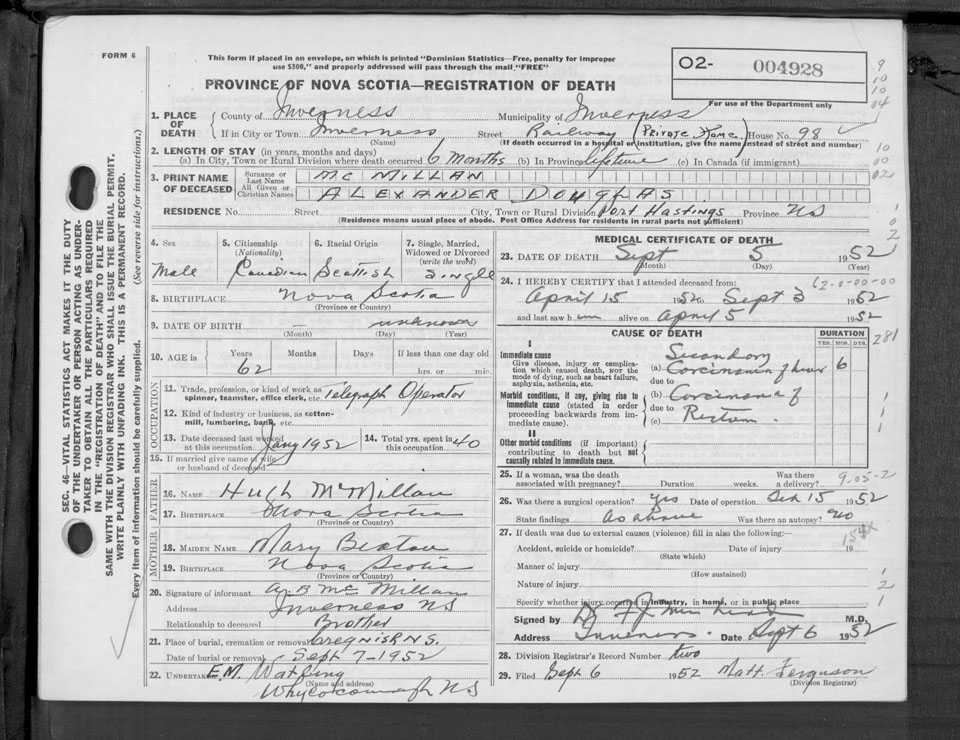 FORM 6
This form if placed in an envelope, on which is printed "Dominion Statistics—Free, penalty for improper
use $300," and properly addressed will pass through the mail "FREE"
PROVINCE OF NOVA SCOTIA—REGISTRATION OF DEATH
O2- 004928
For use of the Department only
SEC. 46—VITAL STATISTICS ACT MAKES IT THE DUTY
OF THE UNDERTAKER OR PERSON ACTING AS UNDER-
TAKER TO OBTAIN ALL THE PARTICULARS REQUIRED
IN THE "REGISTRATION OF DEATH" AND TO FILE THE
SAME WITH THE DIVISION REGISTRAR WHO SHALL ISSUE THE BURIAL PERMIT.
WRITE PLAINLY WITH UNFADING INK. THIS IS A PERMANENT RECORD.
Every item of information should be carefully supplied. (See reverse side for instructions.)
1. PLACE OF DEATH
County of Inverness Municipality of Inverness
If in City or Town Inverness Street Railway (Private Home) House No. 98
(Name) (If death occurred in a hospital or institution, give the name instead of street and number)
2. LENGTH OF STAY (in years, months and days)
(a) In City, Town or Rural Division where death occurred 6 months (b) In Province lifetime (c) In Canada (if immigrant)
3. PRINT NAME OF DECEASED
Surname or Last Name McMILLAN
All Given or Christian Names ALEXANDER DOUGLAS
RESIDENCE No. Street City, Town or Rural Division Port Hastings Province NS
(Residence means usual place of abode. Post Office Address for residents in rural parts not sufficient)
4. Sex
Male
5. Citizenship (Nationality)
Canadian
6. Racial Origin
Scottish
7. Single, Married, Widowed or Divorced (write the word)
Single
8. BIRTHPLACE Nova Scotia
(Province or Country)
9. DATE OF BIRTH unknown
(Month) (Day) (Year)
10. AGE is Years Months Days If less than one day old
62 hrs. or min.
OCCUPATION
11. Trade, profession, or kind of work as Telegraph Operator
spinner, teamster, office clerk, etc.
12. Kind of industry or business, as cotton-
mill, lumbering, bank, etc.
13. Date deceased last worked at this occupation Jany 1952
14. Total yrs. spent in this occupation 40
15. If married give name of wife
or husband of deceased
FATHER
16. NAME Hugh McMillan
17. BIRTHPLACE Nova Scotia
(Province or Country)
MOTHER
18. MAIDEN NAME Mary Beaton
19. BIRTHPLACE Nova Scotia
(Province or Country)
20. Signature of informant McMillan
Address Inverness NS
Relationship to deceased Brother
21. Place of burial, cremation or removal Cregnish N.S.
Date of burial or removal Sept 7-1952
22. UNDERTAKER E.M. Watling
(Name and address)
Whycocomagh NS
MEDICAL CERTIFICATE OF DEATH
23. DATE OF DEATH Sept 5 1952
(Month) (Day) (Year)
24. I HEREBY CERTIFY that I attended deceased from:
April 15 1952 to Sept 3 1952
and last saw him alive on April 5 1952
CAUSE OF DEATH DURATION
YRS. MOS. DYS.
I
Immediate cause
Give disease, injury or complica-
tion which caused death, NOT the
mode of dying, such as heart failure,
asphyxia, asthenia, etc.
Secondary
(a) Carcinoma of liver 6
due to
Morbid conditions, if any, giving rise to
immediate cause (stated in order
proceeding backwards from im-
mediate cause).
(b) Carcinoma of
due to Rectum
(c)
II
Other morbid conditions (if important)
contributing to death but not
causally related to immediate cause.
25. If a woman, was the death associated with pregnancy? Duration weeks. Was there a delivery?
9.05-2
26. Was there a surgical operation? yes Date of operation 15 1952
State findings As above Was there an autopsy? no
27. If death was due to external causes (violence) fill in also the following:—
Accident, suicide or homicide? Date of injury 19
(State which)
Manner of injury
(How sustained)
Nature of injury
Specify whether injury occurred in industry, in home, or in public place
Signed by M.D.
Address Inverness. Date Sept 6 1952
28. Division Registrar's Record Number two
29. Filed Sept 6 1952 Matt. Ferguson
(Division Registrar)